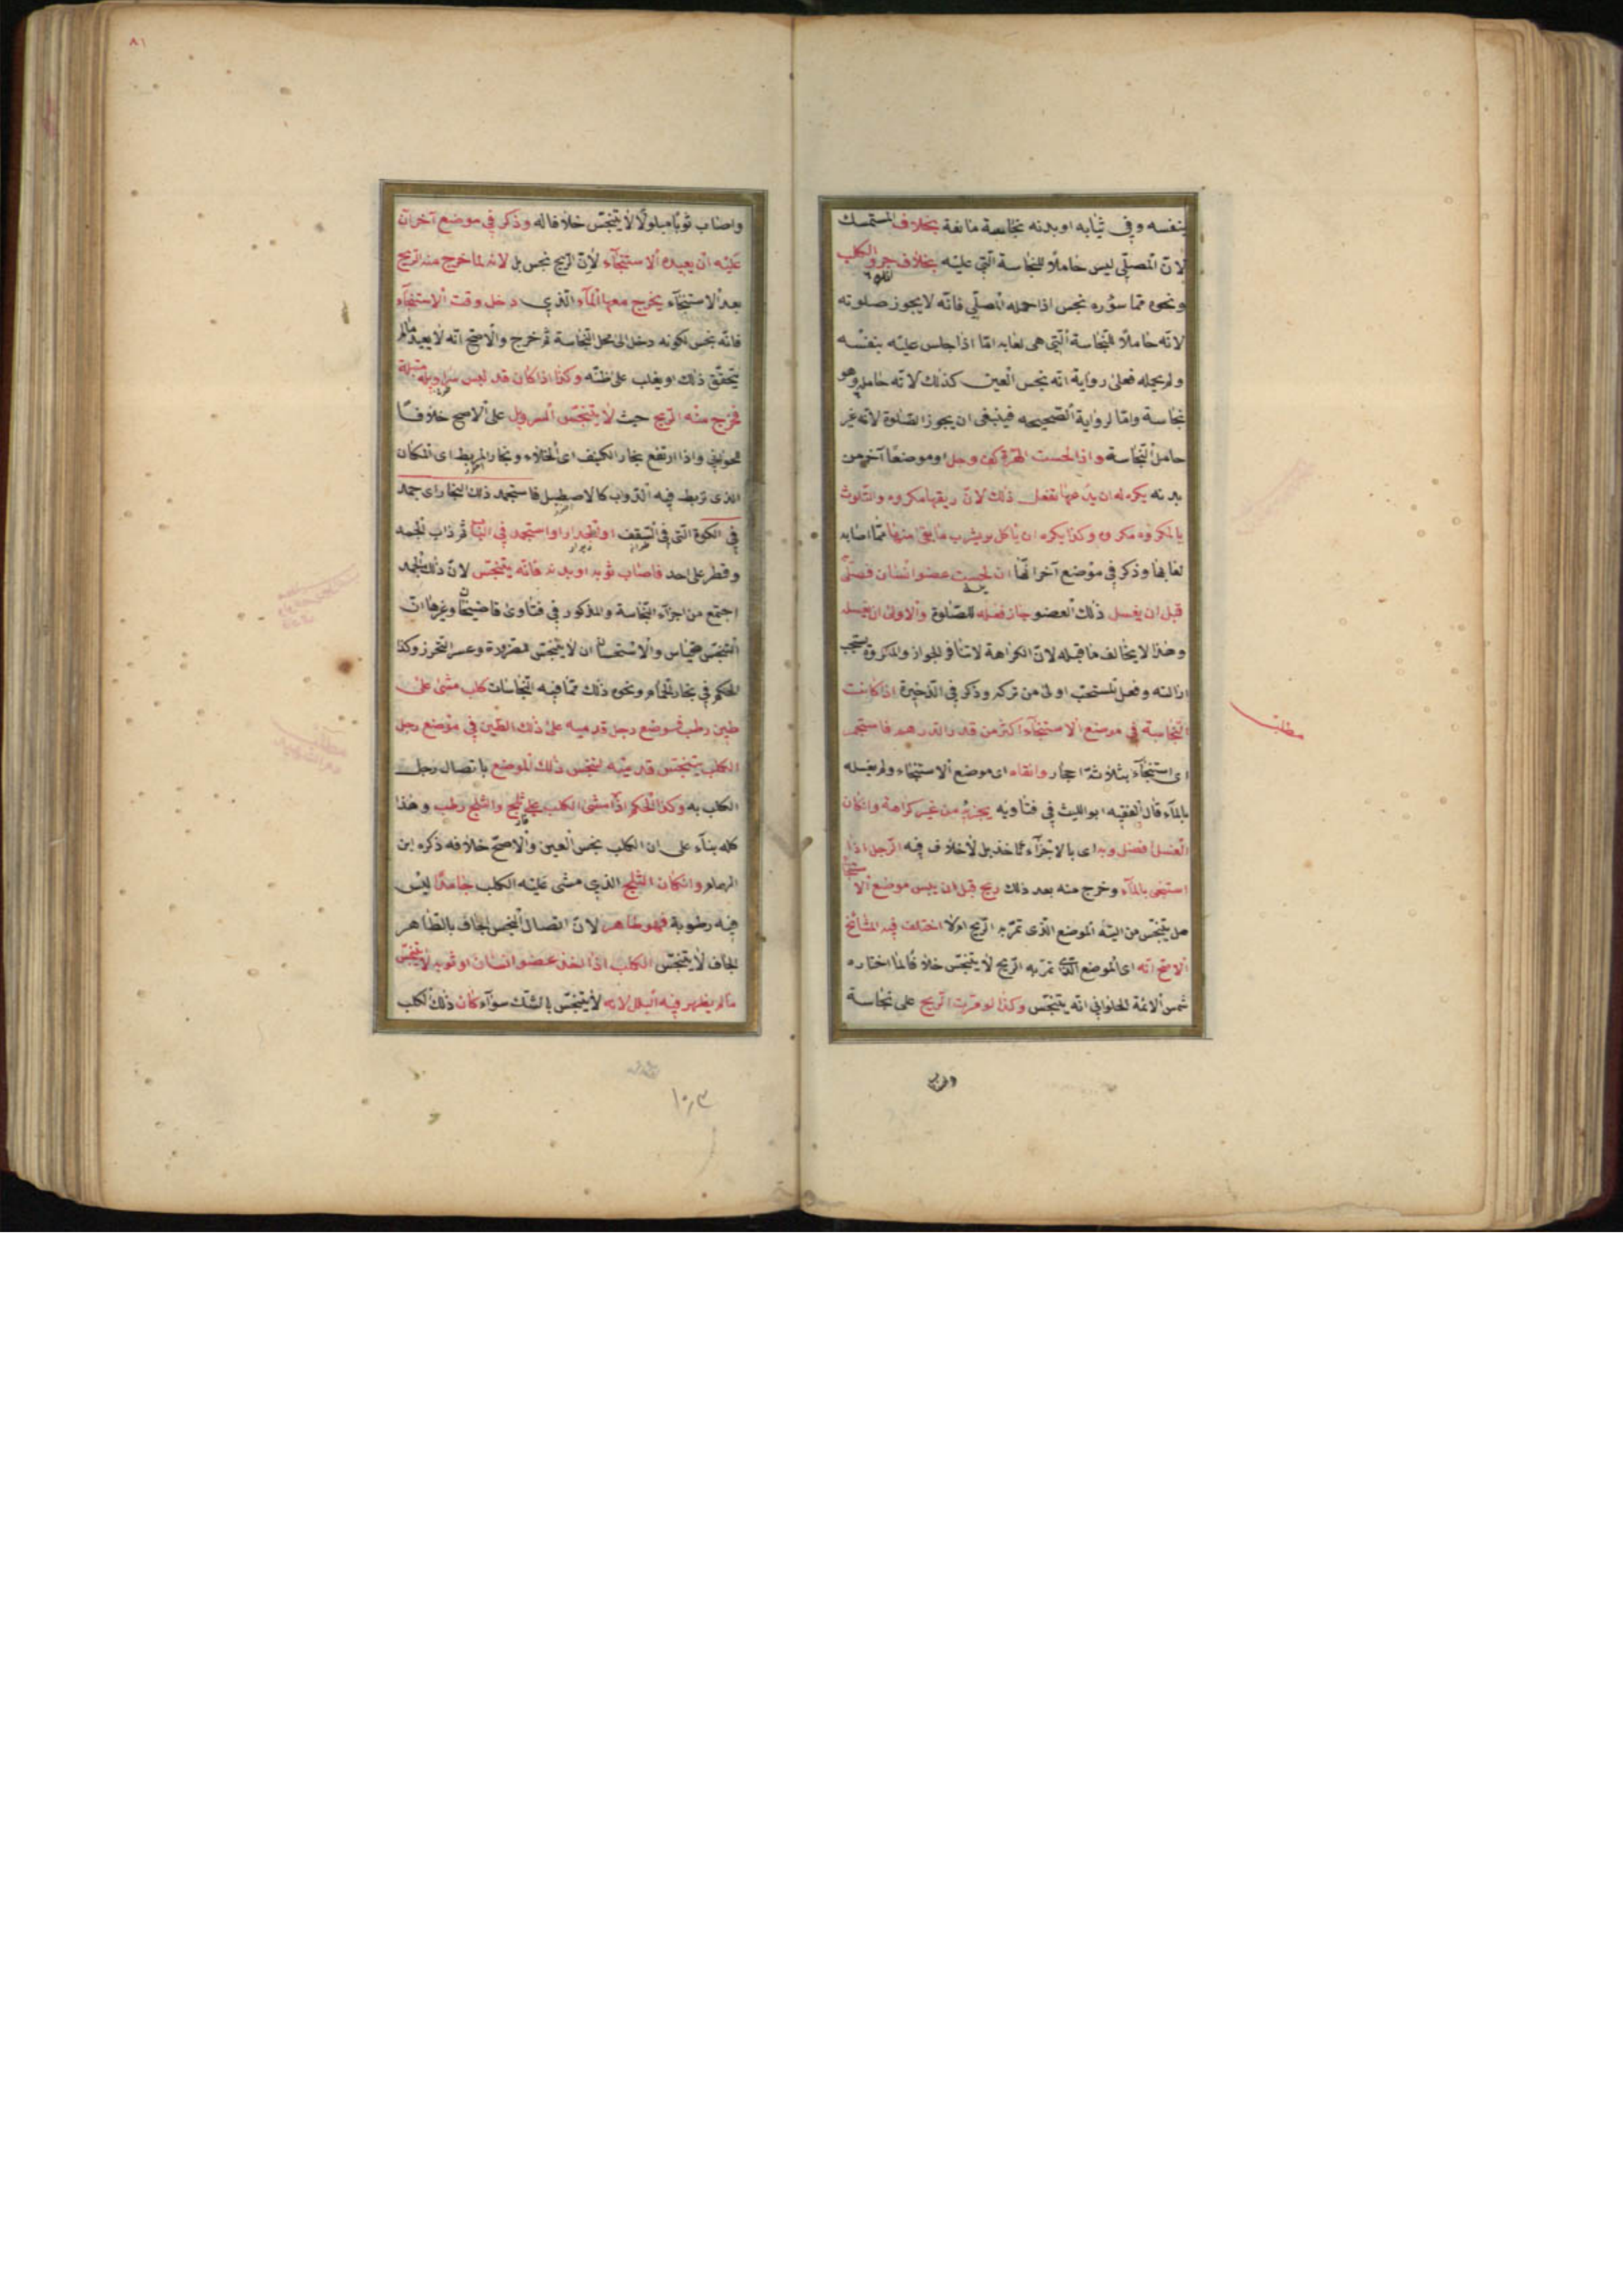 بنفسه وفي ثيابه او بدنه نجاسة مانعة بخلاف المستمسك
لانّ المصلّي ليس حاملاً للنجاسة الّتي عليه بخلاف جرو الكلب
ونحوه ممّا سؤره نجس اذا حمله المصلّي فانّه لا يجوز صلوته
لانّه حاملاً للنّجاسة الّتي هي لعابه امّا اذا جلس عليه بنفسه
ولم يحمله فعلى رواية انّه نجس العين كذلك لانّه حامل وهو
نجاسة وامّا لرواية الصّحيحه فينبغي ان يجوز الصّلوة لانّه غير
حامل النّجاسة واذا لحست الهرّة كفّ رجل او موضعاً آخر من
بدنه يكره له ان يدعها تفعل ذلك لانّ ريقها مكروه والتّلوث
بالمكروه مكروه وكذا يكره ان يأكل او يشرب ما بقى منها ممّا اصابه
لعابها وذكر في موضع آخر انّها ان لحست عضو انسان فصلّى
قبل ان يغسل ذلك العضو جاز فعله للصّلوة والاولى ان يغسله
وهذا لا يخالف ما قبله لانّ الكراهة لا تنافي الجواز والمكروه يستحب
ازالته وفعل المستحبّ اولى من تركه وذكر في الذّخيرة اذا كانت
النّجاسة في موضع الاستنجآء اكثر من قدر الدّرهم فاستجمر
اى استنجآء بثلاثة احجار وانقاه اى موضع الاستنجاء ولم يغسله
بالمآء قال الفقيه ابو الليث في فتاويه يجزيه من غير كراهة وانكان
الغسل افضل وبه اى بالاجزآء نأخذ بل لا خلاف فيه الرّجل اذا
استنجى بالمآء وخرج منه بعد ذلك ريح قبل ان يبس موضع الاستنجا
هل يتنجّس من اليته الموضع الّذى تمرّ به الرّيح او لا اختلف فيه المشائخ
الاصح انّه اى الموضع الّذى تمرّ به الرّيح لا يتنجّس خلافا لما اختاره
شمس الائمة الحلواني انّه يتنجّس وكذا لو مرّت الرّيح على نجاسة
واصاب
مطلب
٨١
واصاب ثوبا مبلولاً لا يتنجّس خلافا له وذكر في موضع آخر انّ
عليه ان يعيد الاستنجآء لانّ الرّيح نجس بل لانه لما خرج منه الرّيح
بعد الاستنجآء يخرج معها المآء الّذي دخل وقت الاستنجآء
فانّه نجس لكونه دخل الى محل النّجاسة ثم خرج والاصحّ انّه لا يعيد ما لم
يتحقّق ذلك او يغلب على ظنّه وكذا اذا كان قد لبس سراويله مبتلة
فخرج منه الرّيح حيث لا يتنجّس السراويل على الاصح خلافاً
للحلواني واذا ارتفع بخار الكنيف اى الخلاء وبخار المربط اى المكان
الذى تربط فيه الدّوب كالاصطبل فاستجمد ذلك البخار اى جمد
في الكوة الّتي في السّقف او الجدار او استجمد في الباب ثم ذاب الجمد
وقطر على احد فاصاب ثوبه او بدنه فانّه يتنجّس لانّ ذلك الجمد
اجتمع من اجزآء النّجاسة والمذكور في فتاوى قاضيخان وغيرها انّ
التنجّس قياس والاستحسان ان لا يتنجّس للضرورة وعسر التحرز وكذا
الحكم في بخار الحمّام ونحوه ذلك ممّا فيه النّجاسات كلب مشى على
طين رطب فوضع رجل قدميه على ذلك الطّين في موضع رجل
الكلب يتنجّس قدميه لتنجّس ذلك الموضع باتصال رجل
الكلب به وكذا الحكم اذا مشى الكلب على ثلج والثلج رطب وهذا
كله بنآء على ان الكلب نجس العين والاصحّ خلافه ذكره ابن
الهمام وانكان الثلج الذي مشى عليه الكلب جامداً ليس
فيه رطوبة فهو طاهر لانّ اتصال النجس الجاف بالطّاهر
الجاف لا يتنجّس الكلب اذا اخذ عضو انسان او ثوبه لا يتنجّس
ما لم يظهر فيه البلل لانه لا يتنجّس بالشك سوآء كان ذلك الكلب